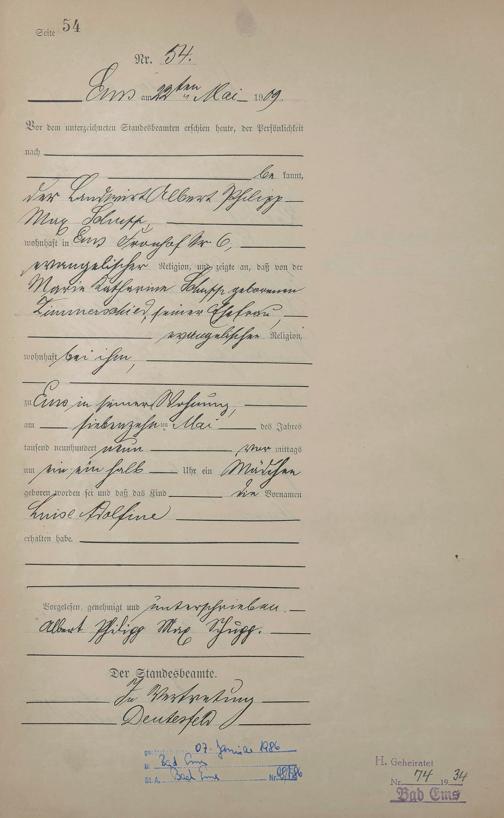 Seite 54
Nr. 54.
Ems am 22ten Mai 1909.
Vor dem unterzeichneten Standesbeamten erschien heute, der Persönlichkeit
nach
be kannt,
der Landwirt Albert Philipp
Max Schupp,
wohnhaft in Ems Fronhof Nr 6,
evangelischer Religion, und zeigte an, daß von der
Marie Katharina Schupp geborenen
Zimmerschied, seiner Ehefrau,
evangelischer Religion,
wohnhaft bei ihm,
zu Ems in seiner Wohnung,
am siebenzehnten Mai des Jahres
tausend neunhundert neun vor mittags
um ein ein halb Uhr ein Mädchen
geboren worden sei und daß das Kind die Vornamen
Luise Adolfine
erhalten habe.
Vorgelesen, genehmigt und unterschrieben.
Albert Philipp Max Schupp.
Der Standesbeamte.
In Vertretung
07. Januar 1986
in Bad Ems
St.A. Bad Ems Nr.
H. Geheiratet
Nr. 74 1934
Bad Ems